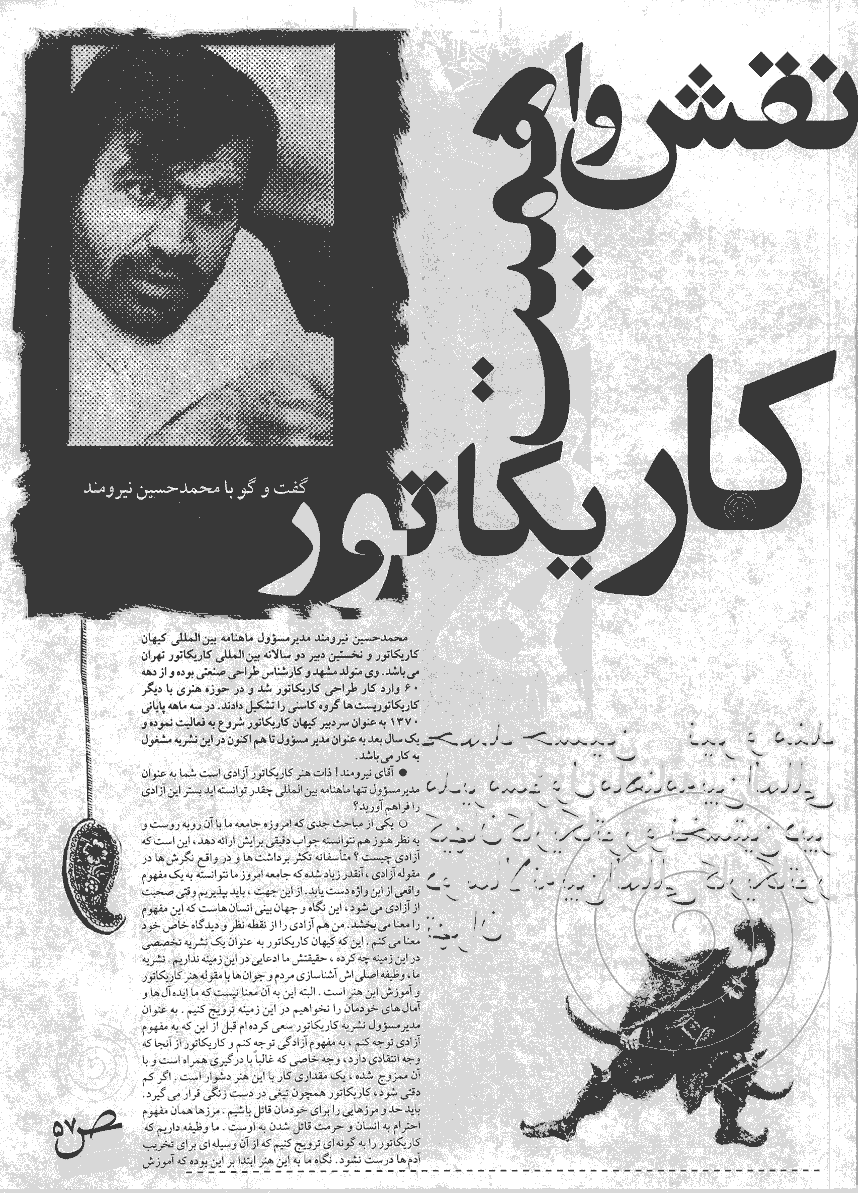 نقش و اهمیت
کاریکاتور
گفت و گو با محمدحسین نیرومند
محمدحسین نیرومند مدیرمسؤول ماهنامه بین‌المللی کیهان
کاریکاتور و نخستین دبیر دو سالانه بین‌المللی کاریکاتور تهران
می‌باشد. وی متولد مشهد و کارشناس طراحی صنعتی بوده و از دهه
۶۰ وارد کار طراحی کاریکاتور شد و در حوزه هنری با دیگر
کاریکاتوریست‌ها گروه کاسنی را تشکیل دادند. در سه ماهه پایانی
۱۳۷۰ به عنوان سردبیر کیهان کاریکاتور شروع به فعالیت نموده و
یک سال بعد به عنوان مدیر مسؤول تا هم اکنون در این نشریه مشغول
به کار می‌باشد.
● آقای نیرومند! ذات هنر کاریکاتور آزادی است شما به عنوان
مدیرمسؤول تنها ماهنامه بین المللی چقدر توانسته اید بستر این آزادی
را فراهم آورید؟
○ یکی از مباحث جدی که امروزه جامعه ما با آن روبه روست و
به نظر هنوز هم نتوانسته جواب دقیقی برایش ارائه دهد، این است که
آزادی چیست؟ متأسفانه تکثر برداشت ها و در واقع نگرش ها در
مقوله آزادی، آنقدر زیاد شده که جامعه امروز ما نتوانسته به یک مفهوم
واقعی از این واژه دست یابد. از این جهت، باید بپذیریم وقتی صحبت
از آزادی می شود، این نگاه و جهان بینی انسان هاست که این مفهوم
را معنا می بخشد. من هم آزادی را از نقطه نظر و دیدگاه خاص خود
معنا می کنم. این که کیهان کاریکاتور به عنوان یک نشریه تخصصی
در این زمینه چه کرده، حقیقتش ما ادعایی در این زمینه نداریم. نشریه
ما، وظیفه اصلی اش آشناسازی مردم و جوان ها با مقوله هنر کاریکاتور
و آموزش این هنر است. البته این به آن معنا نیست که ما ایده آل ها و
آمال های خودمان را نخواهیم در این زمینه ترویج کنیم. به عنوان
مدیرمسؤول نشریه کاریکاتور سعی کرده ام قبل از این که به مفهوم
آزادی توجه کنم، به مفهوم آزادگی توجه کنم و کاریکاتور از آنجا که
وجه انتقادی دارد، وجه خاصی که غالباً با درگیری همراه است و با
آن ممزوج شده، یک مقداری کار با این هنر دشوار است. اگر کم
دقتی شود، کاریکاتور همچون تیغی در دست زنگی قرار می گیرد.
باید حد و مرزهایی را برای خودمان قائل باشیم. مرزها همان مفهوم
احترام به انسان و حرمت قائل شدن به اوست. ما وظیفه داریم که
کاریکاتور را به گونه ای ترویج کنیم که از آن وسیله ای برای تخریب
آدم ها درست نشود. نگاه ما به این هنر ابتدا بر این بوده که آموزش
محمدحسین نیرومند
مدیرمسؤول ماهنامه بین المللی
کیهان کاریکاتور و نخستین دبیر
دو سالانه بین المللی کاریکاتور
تهران
ص ۵۷